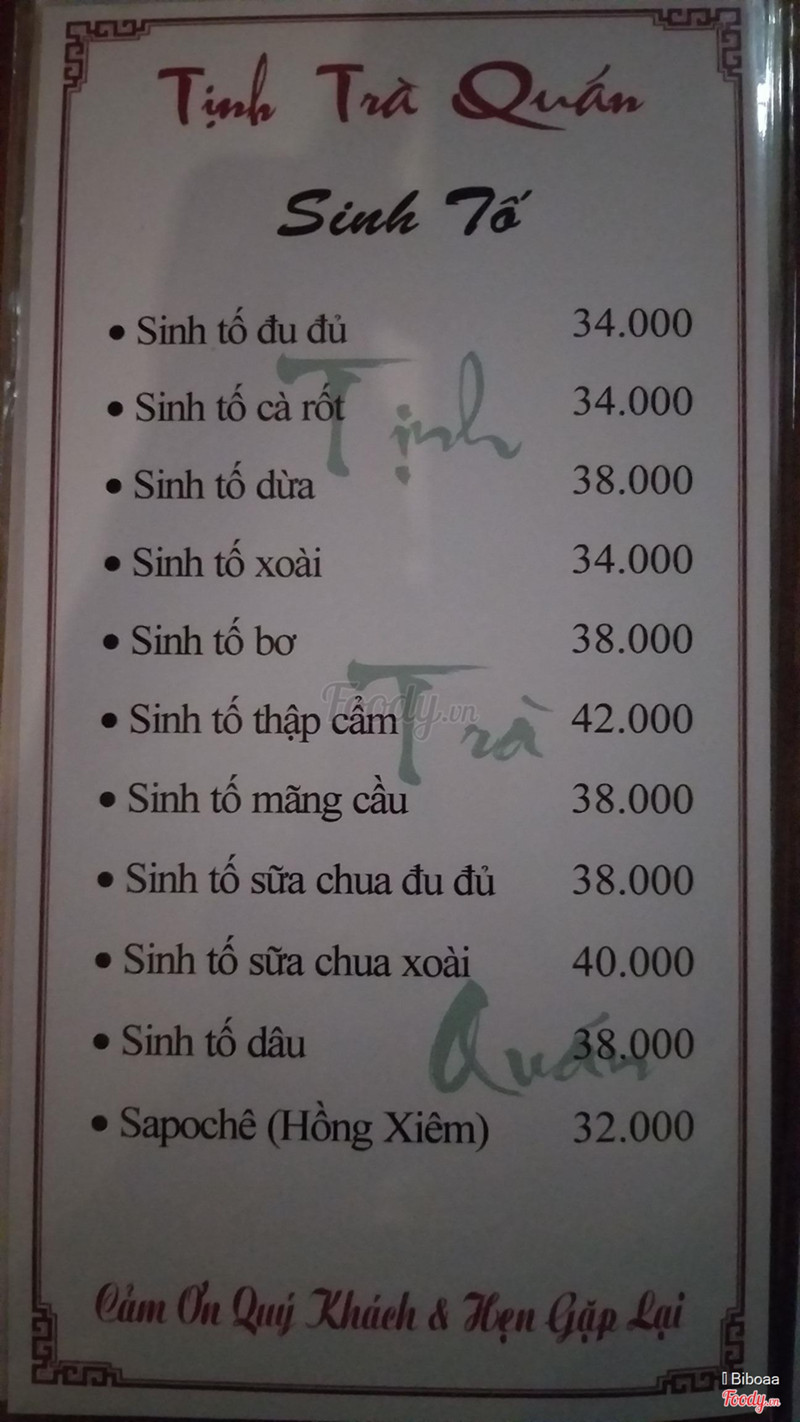 Tịnh Trà Quán
Sinh Tố
• Sinh tố đu đủ 34.000
• Sinh tố cà rốt 34.000
• Sinh tố dừa 38.000
• Sinh tố xoài 34.000
• Sinh tố bơ 38.000
• Sinh tố thập cẩm 42.000
• Sinh tố mãng cầu 38.000
• Sinh tố sữa chua đu đủ 38.000
• Sinh tố sữa chua xoài 40.000
• Sinh tố dâu 38.000
• Sapochê (Hồng Xiêm) 32.000
Tịnh
Trà
Quán
Foody.vn
Cảm Ơn Quý Khách & Hẹn Gặp Lại
Biboaa
Foody.vn